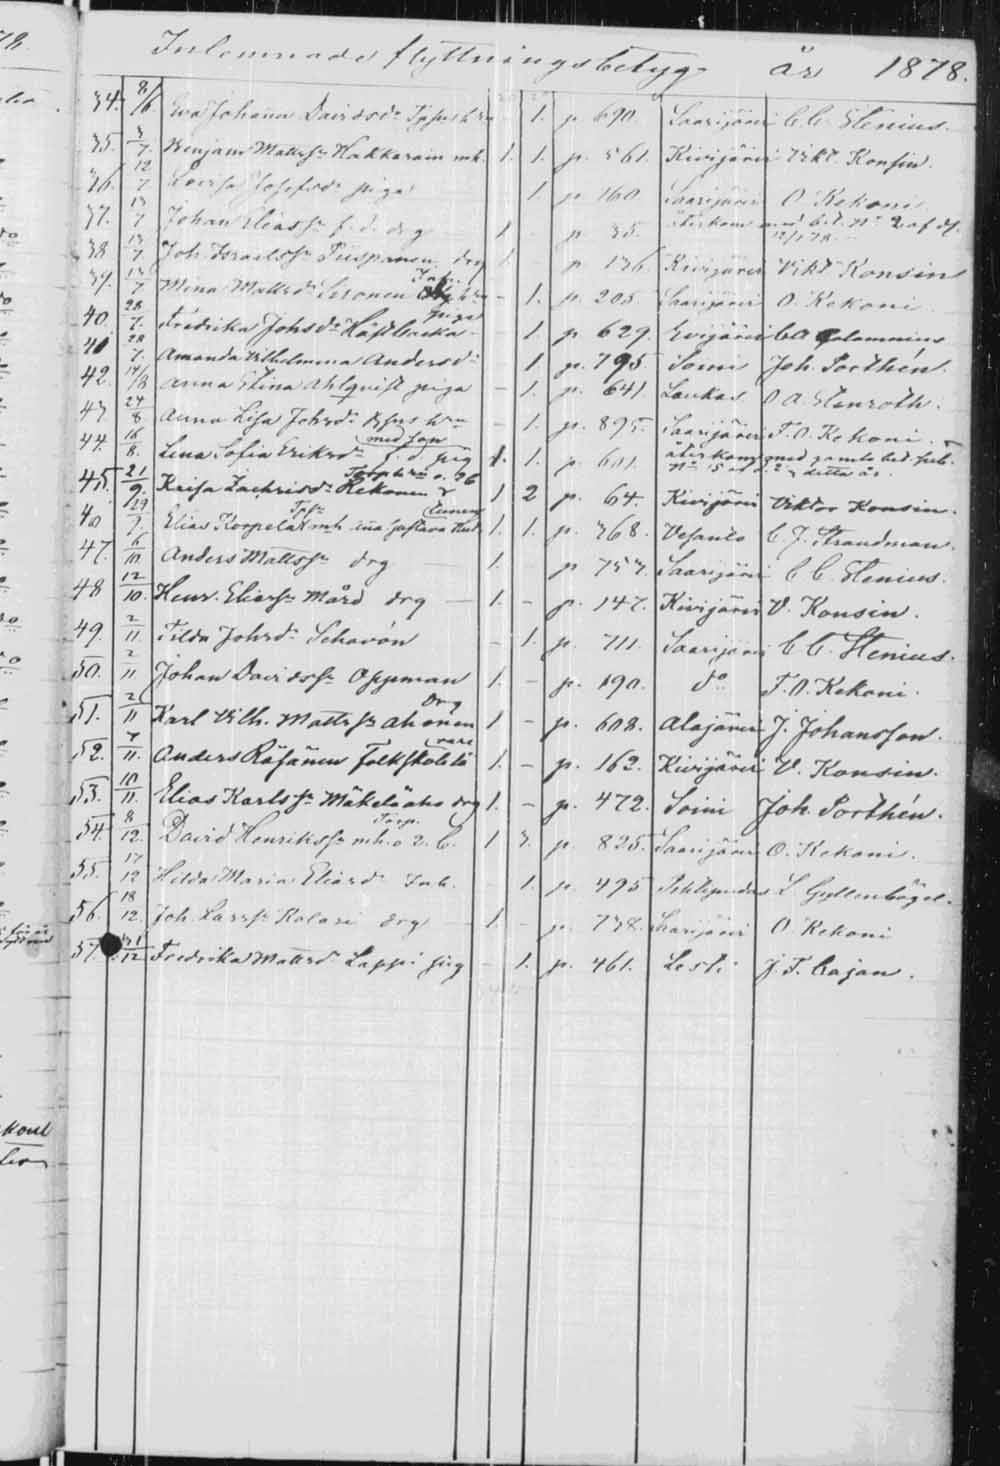 Inlemnade flyttningsbetyg år 1878.
34. 8/6 Eva Johanna Davidsdr - 1. p. 690. Saarijärvi C. C. Stenius.
35. 3/7. Benjam Mattss. Hakkarain mh. 1. 1. p. 561. Kivijärvi Vikt. Konsin.
36. 12/7 Lovisa Josefsdr piga 1. p. 160. Saarijärvi O. Kekoni
37. 13/7 Johan Eliass. f. d. drg 1 - p. 35. återkom med bet. No 2 af
12/1 78.
38 13/7. Joh. Israelss. Piispanen drg 1 - p. 136. Kivijärvi Vikt Konsin
Inh.
39. 13/7 Mina Mattsdr Sironen - 1. p. 205. Saarijärvi O. Kekoni
piga
40. 28/7. Fredrika Johsdr Hästbacka - 1. p. 629. Evijärvi Calamnius
41 28/7. Amanda Vilhelmina Andersdr 1 p. 795. Soini Joh. Porthén.
42. 14/8 Anna Stina Ahlqvist piga - 1. p. 641. Laukas O. A. Stenroth.
43 24/8 Anna Lisa Johsdr - 1. p. 895. Saarijärvi F. O. Kekoni.
med son
44. 16/8. Lena Sofia Eriksdr f. d. pig 1. 1. p. 601. återkom med gamla bet.
No 15 ditta år
45. 21/9. Kaisa Zachrisdr Kekonen 1 2 p. 64. Kivijärvi Viktor Konsin.
46 29/9. Elias Korpela mh. Gustava 1. 1. p. 368. Vesanto C. J. Strandman.
47. 6/10 Anders Mattss. drg 1. p 757. Saarijärvi C. C. Stenius.
48 12/10. Henr. Eliass. Mård drg — 1. - p. 147. Kivijärvi V. Konsin.
49. 2/11 Tilda Johsdr Schavón - 1. p. 711. Saarijärvi C. C. Stenius.
50. 2/11 Johan Davidss. Oppman 1. - p. 190. do F. O. Kekoni.
drg
51. 2/11 Karl Vilh. Mattss. Ahonen 1 - p. 608. Alajärvi J. Johansson.
rare
52. 7/11. Anders Räsänen Folkskolelä 1. - p. 162. Kivijärvi V. Konsin.
53. 10/11. Elias Karlss. Mäkeläaho drg 1. - p. 472. Soini Joh. Porthén.
Torp.
54. 8/12. David Henrikss. mh. o 2. b. 1 3. p. 825. Saarijärvi O. Kekoni.
55. 17/12 Hilda Maria Eliasdr Inh. - 1. p. 495 Pihlajavdas L Gyllenbögel.
56. 18/12. Joh. Larss. Kolari drg 1. - p. 738. Saarijärvi O. Kekoni
57. 31/12 Fredrika Mattsdr Lappi pig - 1. p. 461. Lesti J. F. Cajan.